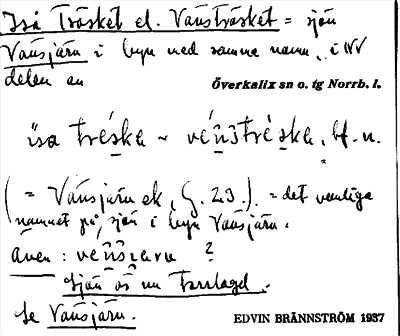 Isa Träsket el. Vänsträsket = sjön
Vänsjärv i byn med samma namn, i NV
delen av
Överkalix sn o. tg Norrb. l.
isa träska ~ vänsträska, bf. n.
(= Vänsjärv ek, G. 23.). = det vanliga
namnet på sjön i byn Vänsjärv.
även : ?
Sjön är nu torrlagd.
Se Vänsjärv.
EDVIN BRÄNNSTRÖM 1937